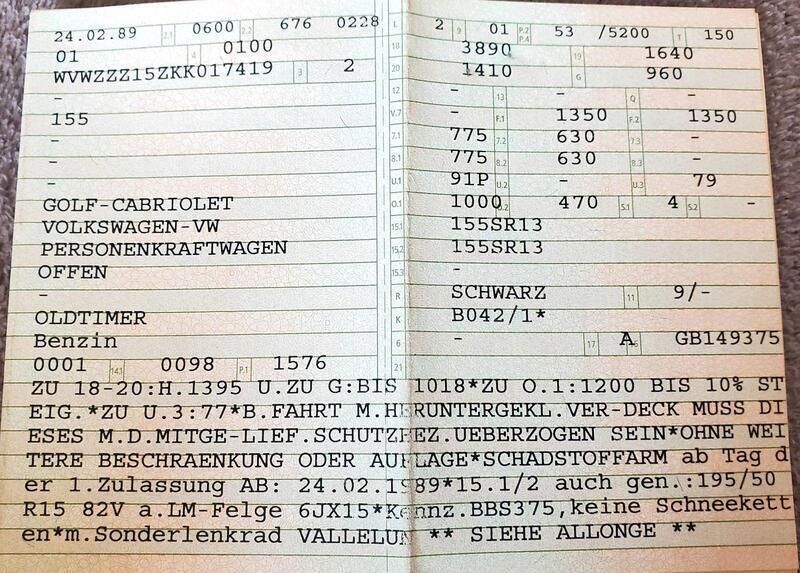 24.02.89 2.1 0600 2.2 676 0228 L 2 9 01 P.2 P.4 53 /5200 T 150
01 4 0100 18 3890 19 1640
WVWZZZ15ZKK017419 3 2 20 1410 G 960
- 12 - 13 - Q -
155 V.7 - F.1 1350 F.2 1350
- 7.1 775 7.2 630 7.3 -
- 8.1 775 8.2 630 8.3 -
- U.1 91P U.2 - U.3 79
GOLF-CABRIOLET O.1 1000 O.2 470 S.1 4 S.2 -
VOLKSWAGEN-VW 15.1 155SR13
PERSONENKRAFTWAGEN 15.2 155SR13
OFFEN 15.3 -
- R SCHWARZ 11 9/-
OLDTIMER K B042/1*
Benzin 6 - 17 A 16 GB149375
0001 14.1 0098 P.1 1576 21
ZU 18-20:H.1395 U.ZU G:BIS 1018*ZU O.1:1200 BIS 10% ST
EIG.*ZU U.3:77*B.FAHRT M.HERUNTERGEKL.VER-DECK MUSS DI
ESES M.D.MITGE-LIEF.SCHUTZBEZ.UEBERZOGEN SEIN*OHNE WEI
TERE BESCHRAENKUNG ODER AUFLAGE*SCHADSTOFFARM ab Tag d
er 1.Zulassung AB: 24.02.1989*15.1/2 auch gen.:195/50
R15 82V a.LM-Felge 6JX15*Kennz.BBS375,keine Schneekett
en*m.Sonderlenkrad VALLELUN ** SIEHE ALLONGE **